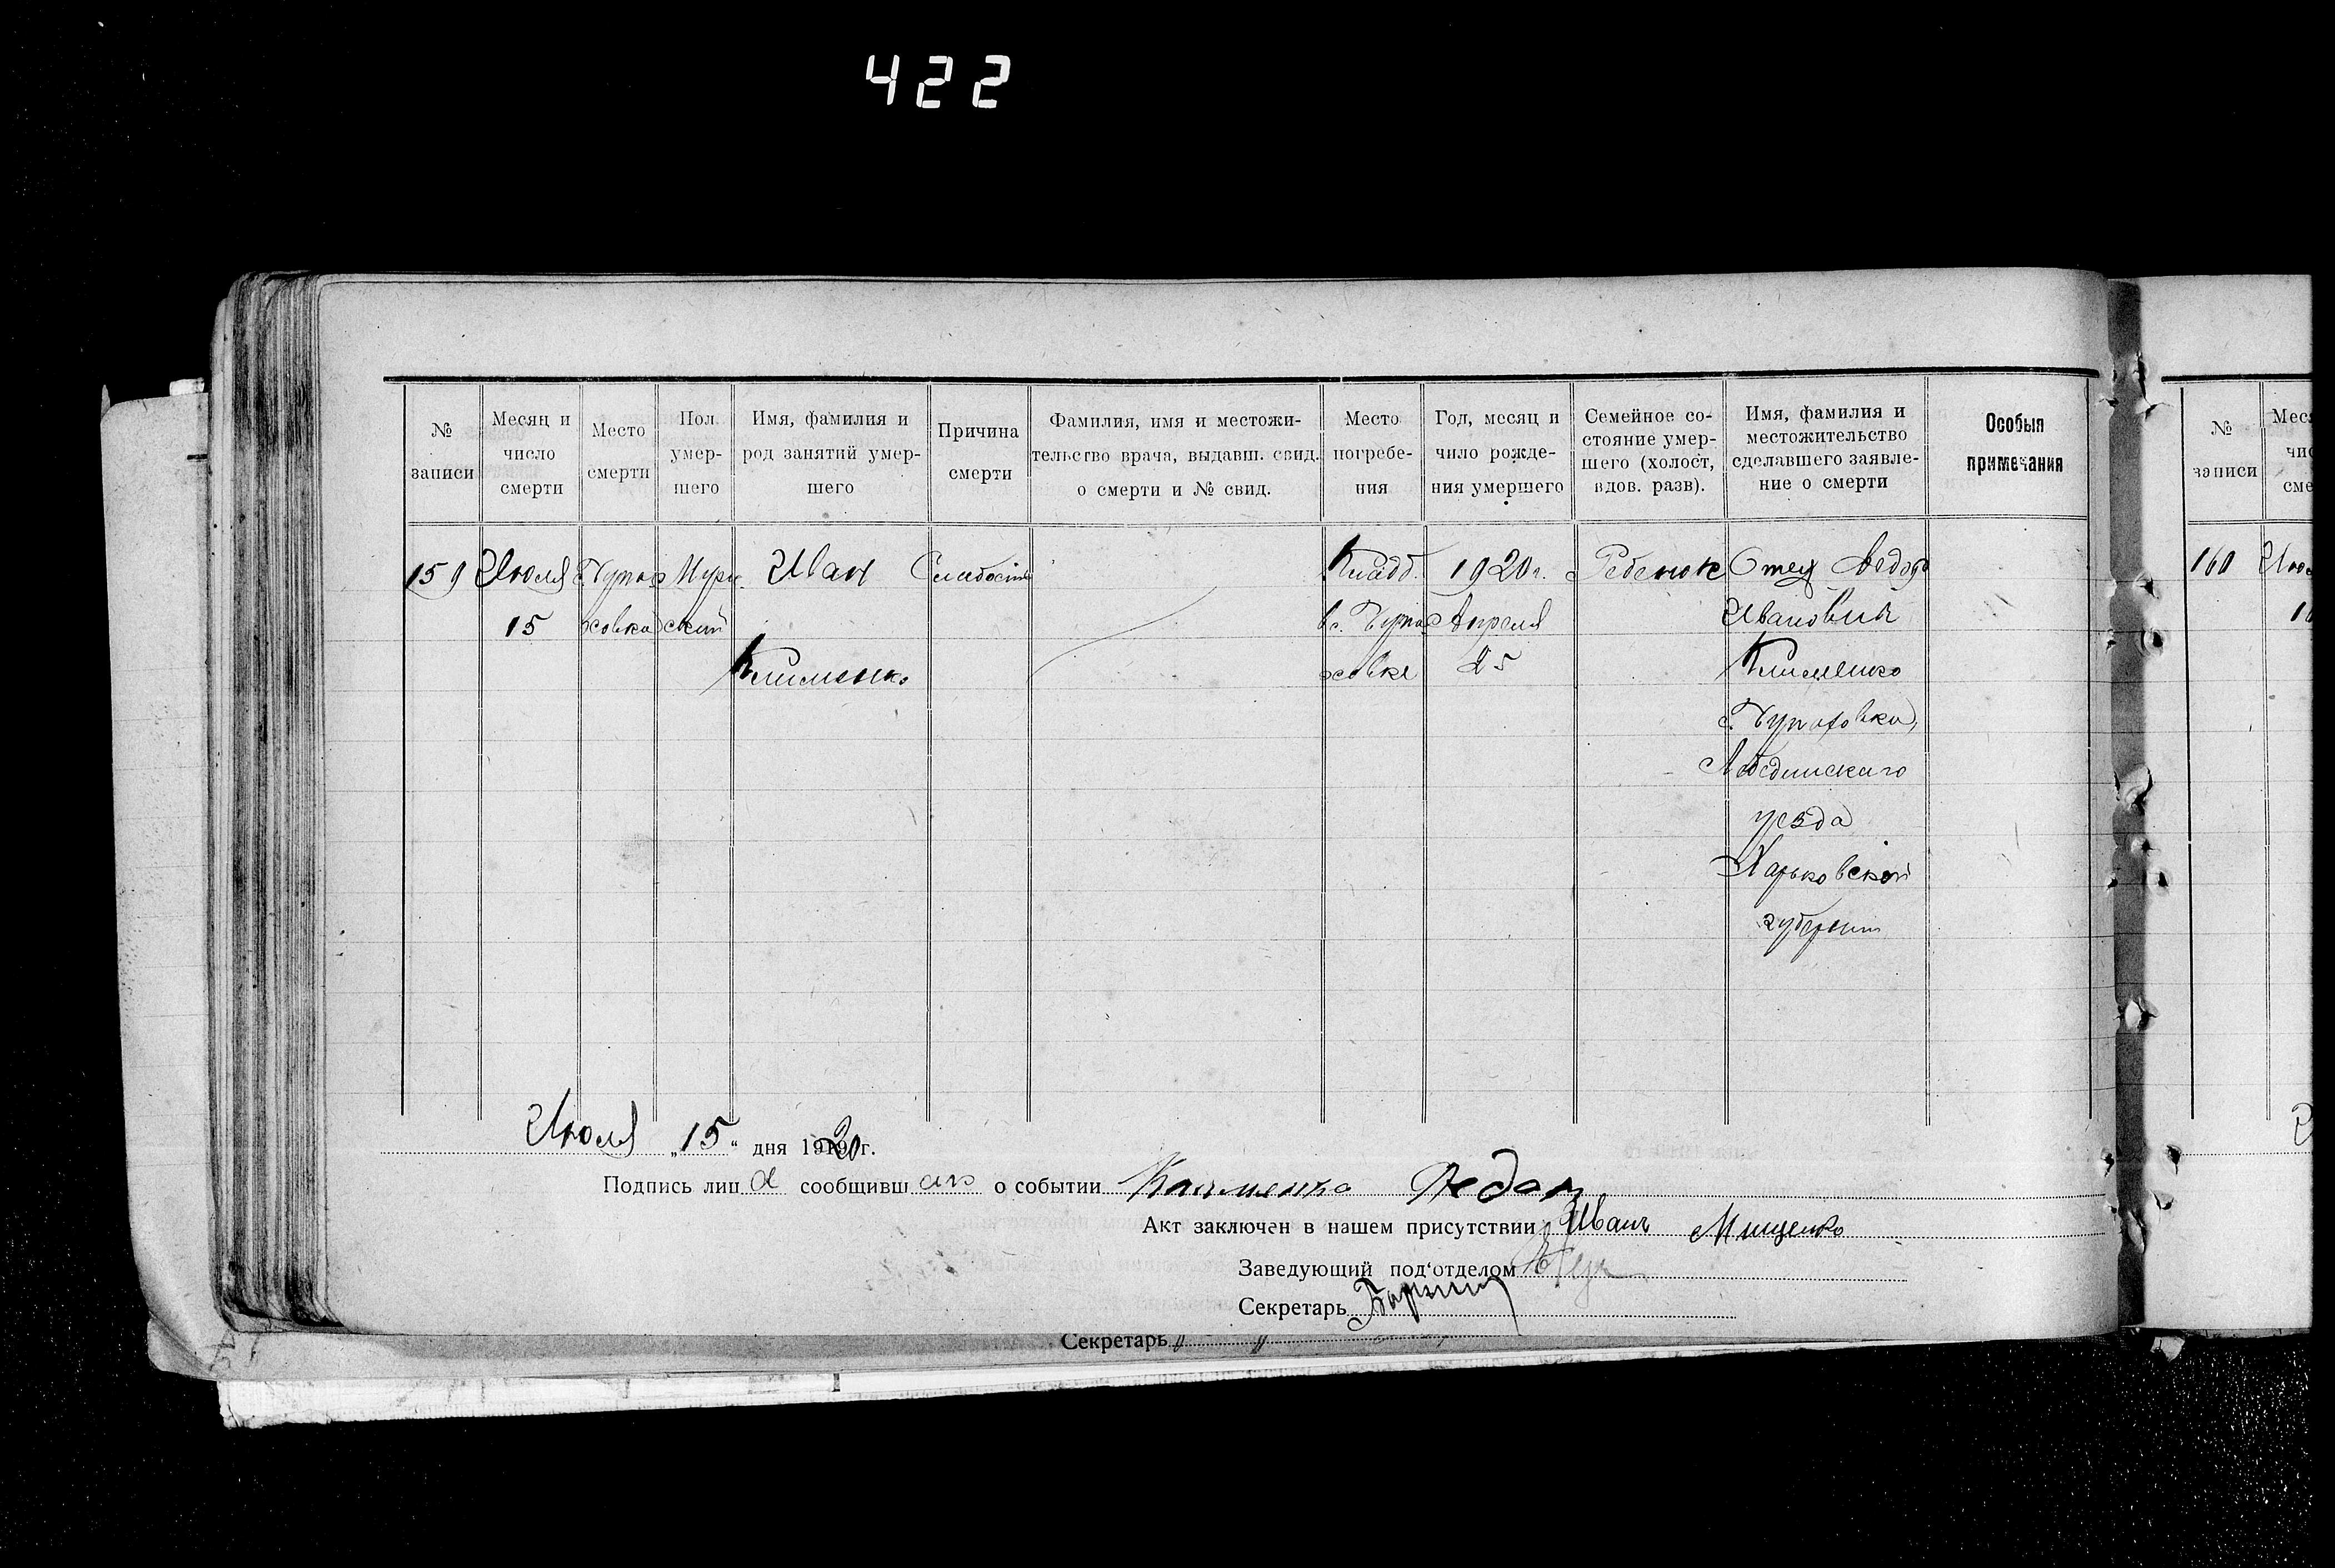 422
№ записи
Месяц и число смерти
Место смерти
Пол умер-шего
Имя, фамилия и род занятий умер-шего
Причина смерти
Фамилия, имя и местожи-тельство врача, выдавш. свид. о смерти и № свид.
Место погребе-ния
Год, месяц и чило рожде-ния умершего
Семейное со-стояние умер-шего (холост, вдов. разв).
Имя, фамилия и местожительство сделавшего заявле-ние о смерти
Особыя примечания
№ записи
159
Июля
15
Муж
ский
Иван
Клименко
Слабость
Кладб.
1920 г.
Апреля
25
Ребенок
Отец Федор
Иванович
Клименко
Лебединскаго
уезда
Харьковской
губернии
160
Июля „15“ дня 1920 г.
Подпись лица сообщившаго о событии Клименко Федор
Акт заключен в нашем присутствии Иванъ Мищенко
Заведующий под'отделом
Секретарь
Секретарь „ „